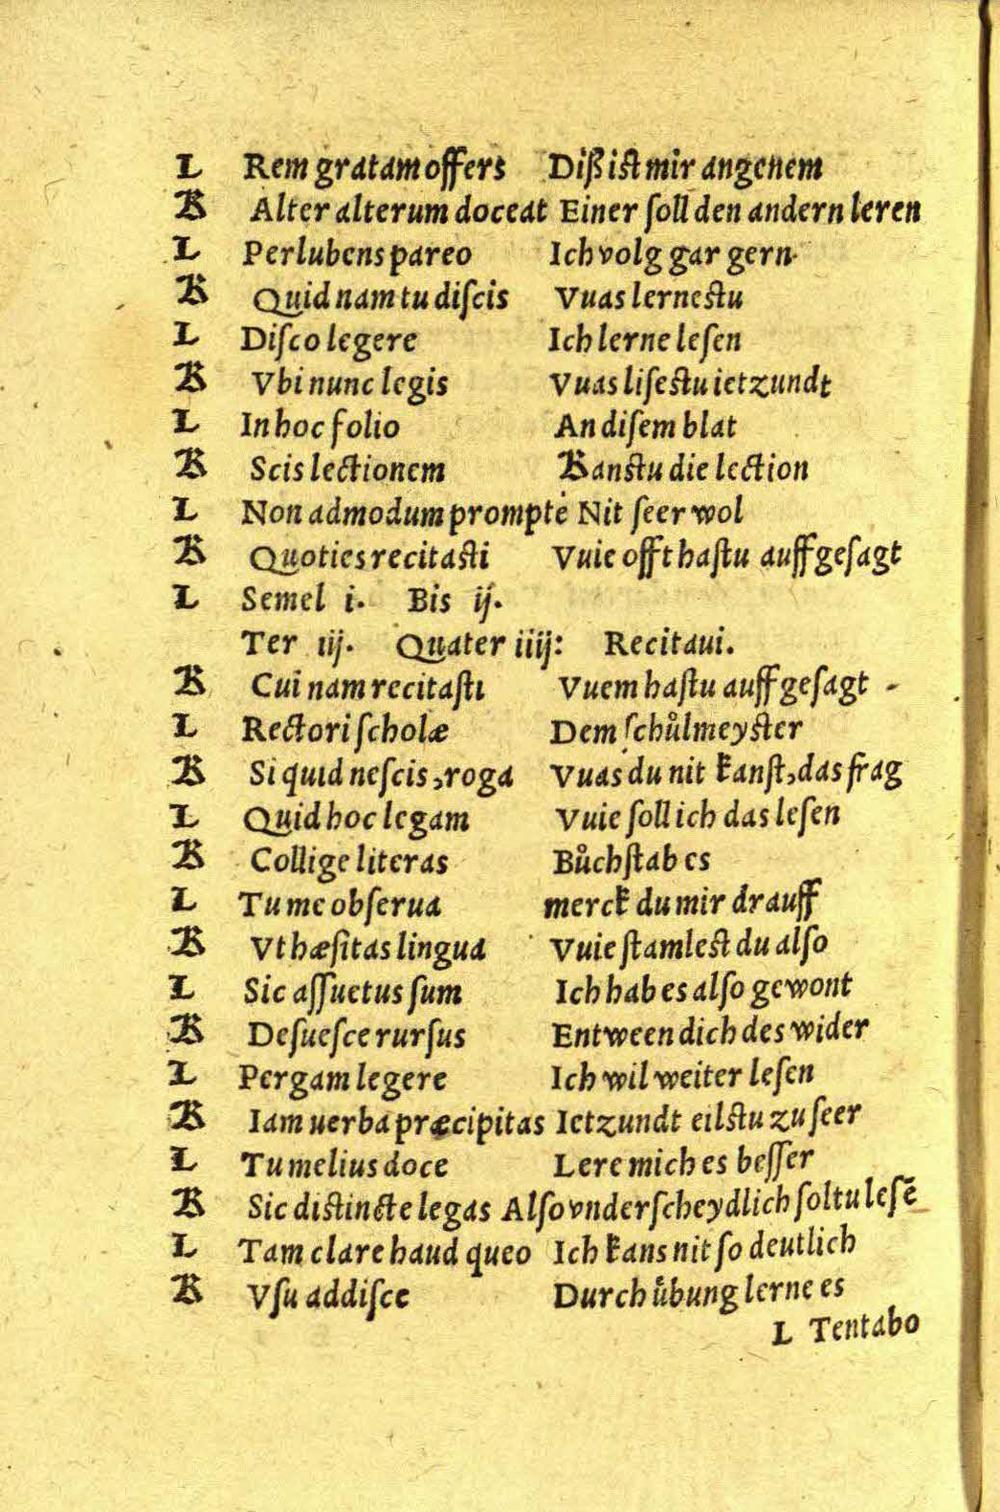 L Rem gratam offers Diß ist mir angenem
K Alter alterum doceat Einer ſoll den andern leren
L Perlubens pareo Ich volg gar gern
K Quid nam tu diſcis Vuas lerneſtu
L Diſco legere Ich lerne leſen
K Vbi nunc legis Vuas liſeſtu ietzundt
L In hoc folio An diſem blat
K Scis lectionem Kanſtu die lection
L Non admodum prompte Nit ſeer wol
K Quoties recitaſti Vuie offt haſtu auffgeſagt
L Semel i. Bis ij.
Ter iij. Quater iiij: Recitaui.
K Cui nam recitaſti Vuem haſtu auffgeſagt
L Rectori ſcholæ Dem ſchůlmeyſter
K Si quid neſcis, roga Vuas du nit kanſt, das frag
L Quid hoc legam Vuie ſoll ich das leſen
K Collige literas Bůchſtab es
L Tu me obſerua merck du mir drauff
K Vt hæſitas lingua Vuie ſtamleſt du alſo
L Sic aſſuetus ſum Ich hab es alſo gewont
K Deſueſce rurſus Entween dich des wider
L Pergam legere Ich wil weiter leſen
K Iam uerba præcipitas Ietzundt eilſtu zu ſeer
L Tu melius doce Lere mich es beſſer
K Sic diſtincte legas Alſo vnderſcheydlich ſoltu leſē
L Tam clare haud queo Ich kans nit ſo deutlich
K Vſu addiſce Durch ůbung lerne es
L Tentabo